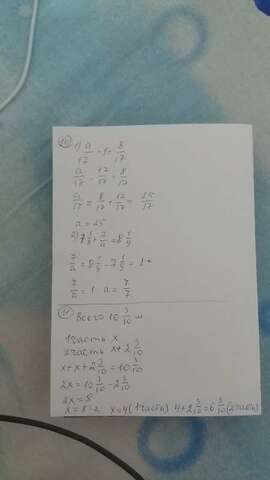 10) 1) a/17 - 1 = 8/17
a/17 - 17/17 = 8/17
a/17 = 8/17 + 17/17 = 25/17
a = 25
2) 7 1/9 + 7/a = 8 1/9
7/a = 8 1/9 - 7 1/9 = 1
7/a = 1 a = 7/7
11) Всего 10 3/10 м
1 часть x
2 часть x + 2 3/10
x + x + 2 3/10 = 10 3/10
2x = 10 3/10 - 2 3/10
2x = 8
x = 8 : 2 x = 4 (1 часть) 4 + 2 3/10 = 6 3/10 (2 часть)